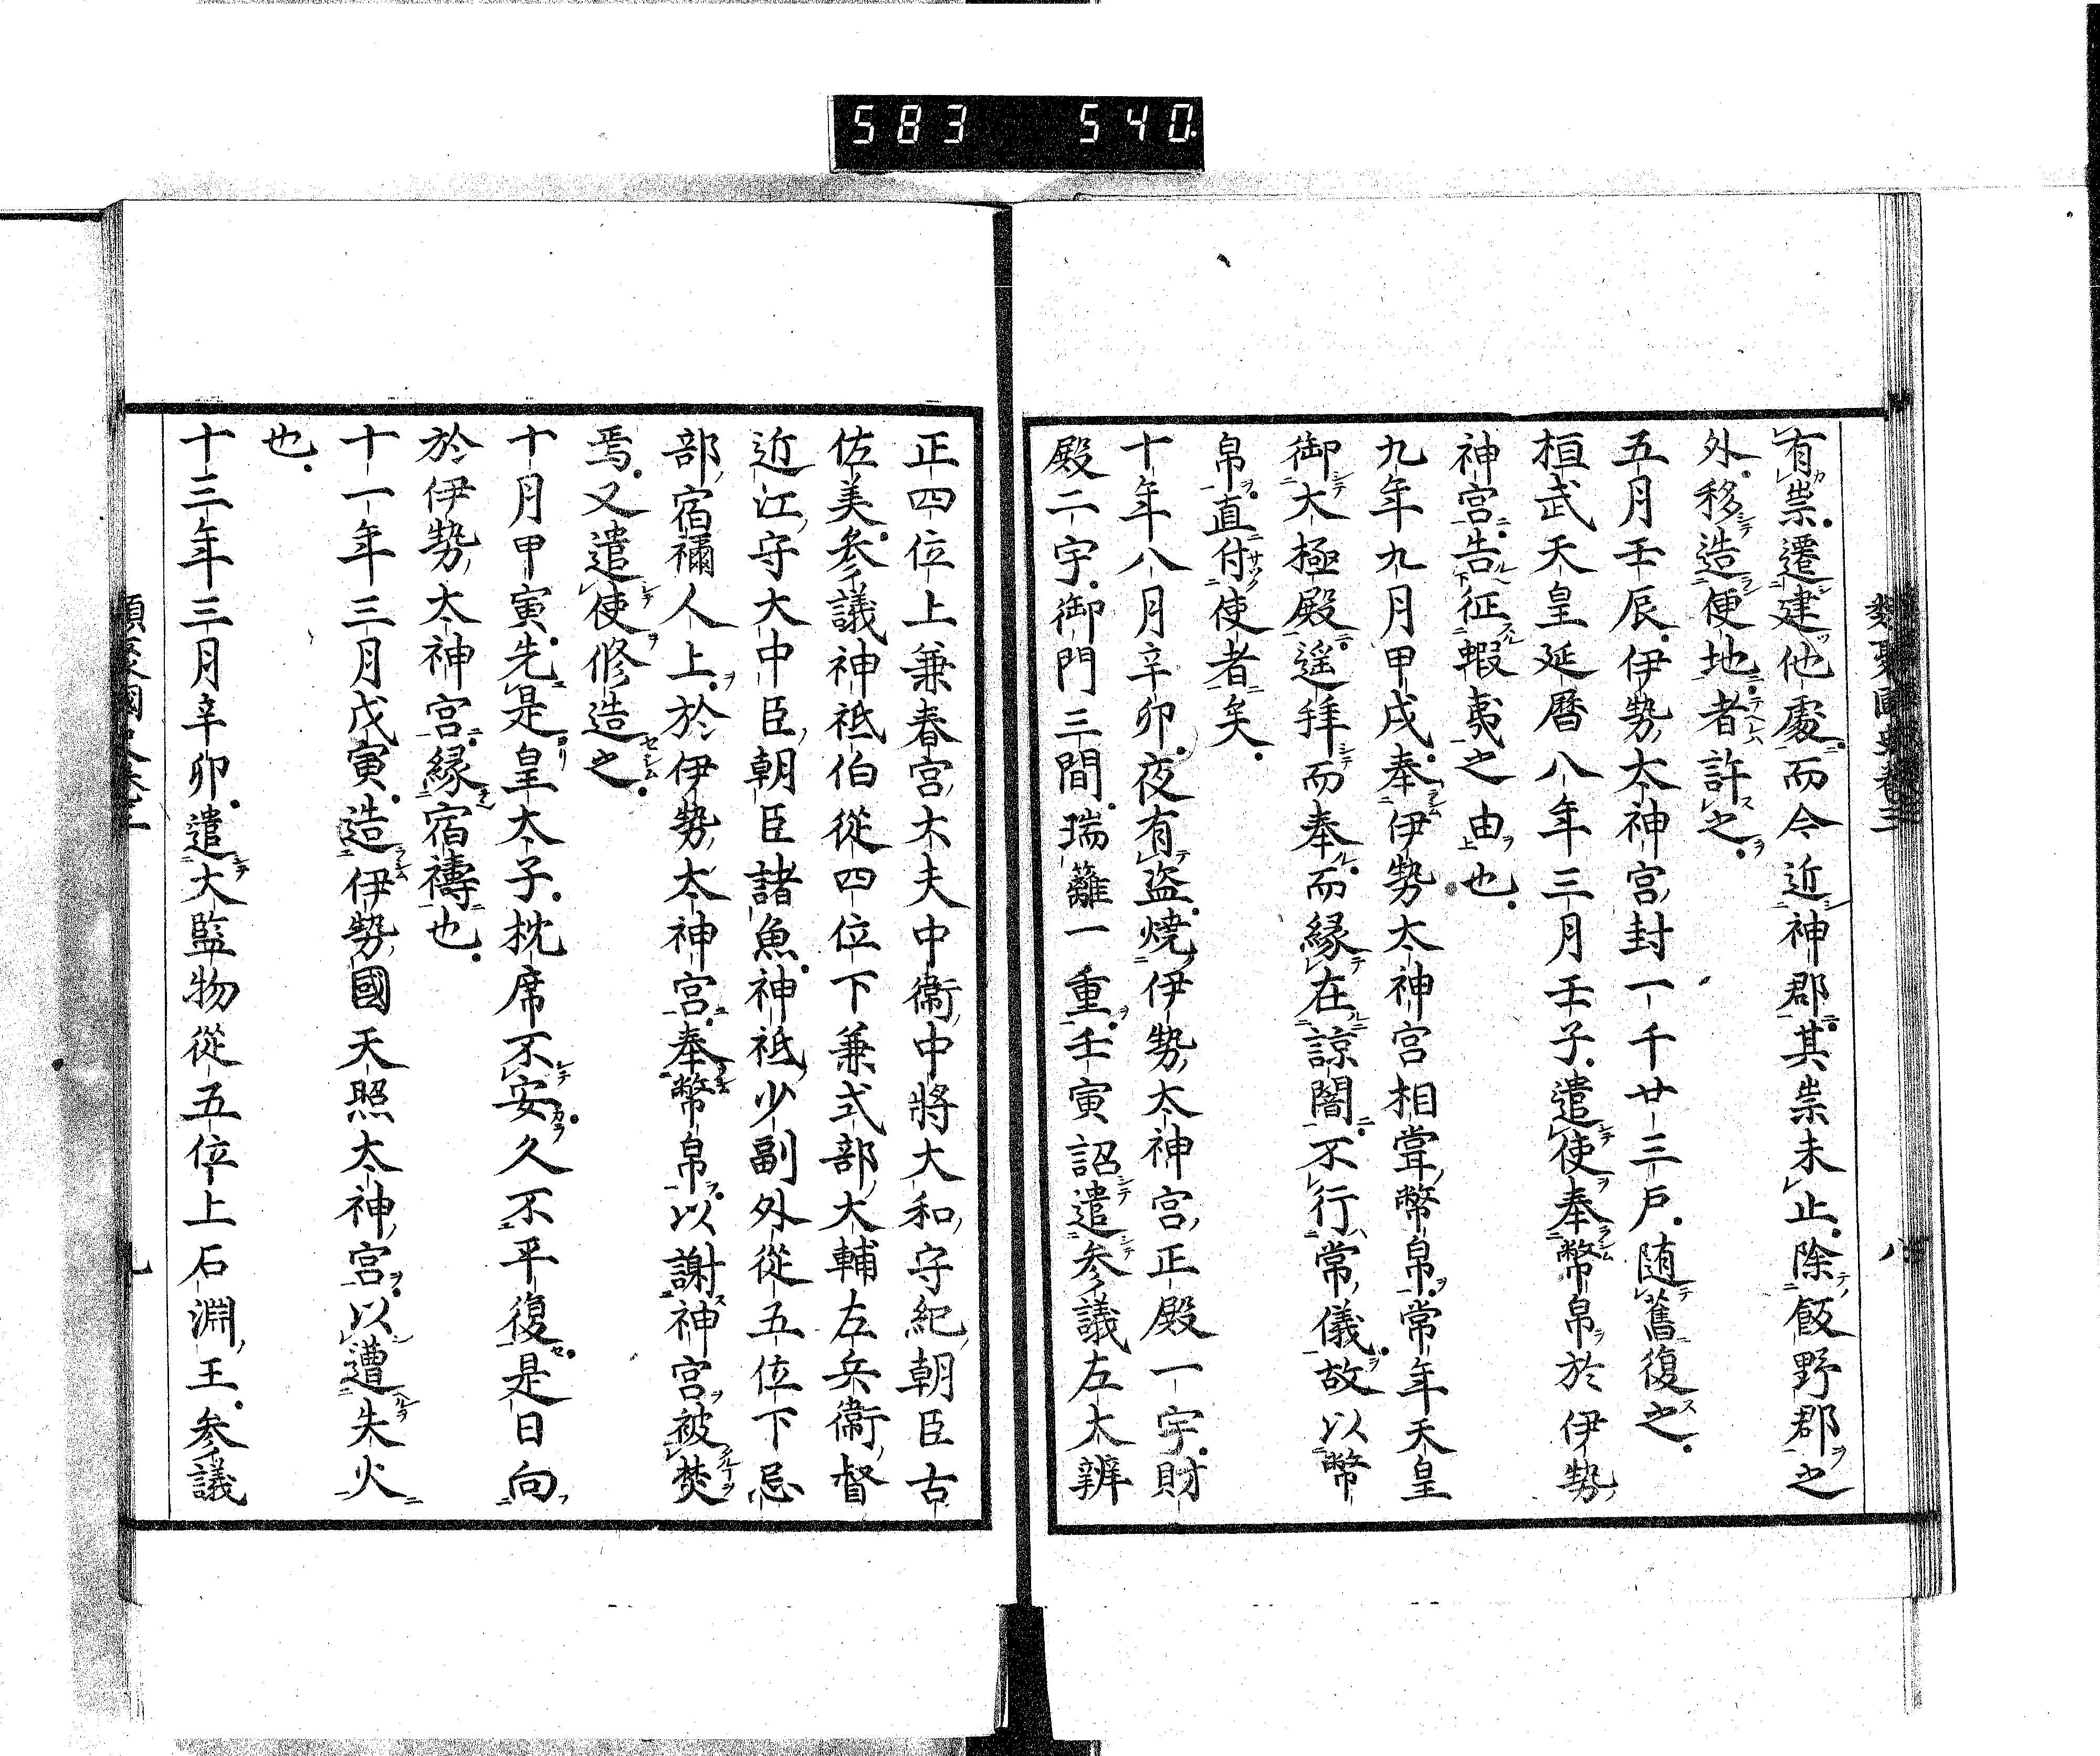 583 540
類聚國史卷三
八
有祟遷建他處而今近神郡其祟未止除飯野郡之
外移造便地者許之
五月壬辰伊勢太神宮封一千廿三戸随舊復之
桓武天皇延暦八年三月壬子遣使奉幣帛於伊勢
神宮告征蝦夷之由也
九年九月甲戌奉伊勢太神宮相甞幣帛常年天皇
御大極殿遥拜而奉而縁在諒闇不行常儀故以幣
帛直付使者矣
十年八月辛卯夜有盗燒伊勢太神宮正殿一宇財
殿二宇御門三間瑞籬一重壬寅詔遣参議左大辨
正四位上兼春宮大夫中衞中將大和守紀朝臣古
佐美参議神祗伯從四位下兼式部大輔左兵衞督
近江守大中臣朝臣諸魚神祗少副外從五位下忌
部宿禰人上於伊勢太神宮奉幣帛以謝神宮被焚
焉又遣使修造之
十月甲寅先是皇太子枕席不安久不平復是日向
於伊勢太神宮縁宿禱也
十一年三月戊寅造伊勢國天照太神宮以遭失火
也
十三年三月辛卯遣大監物從五位上石淵王参議